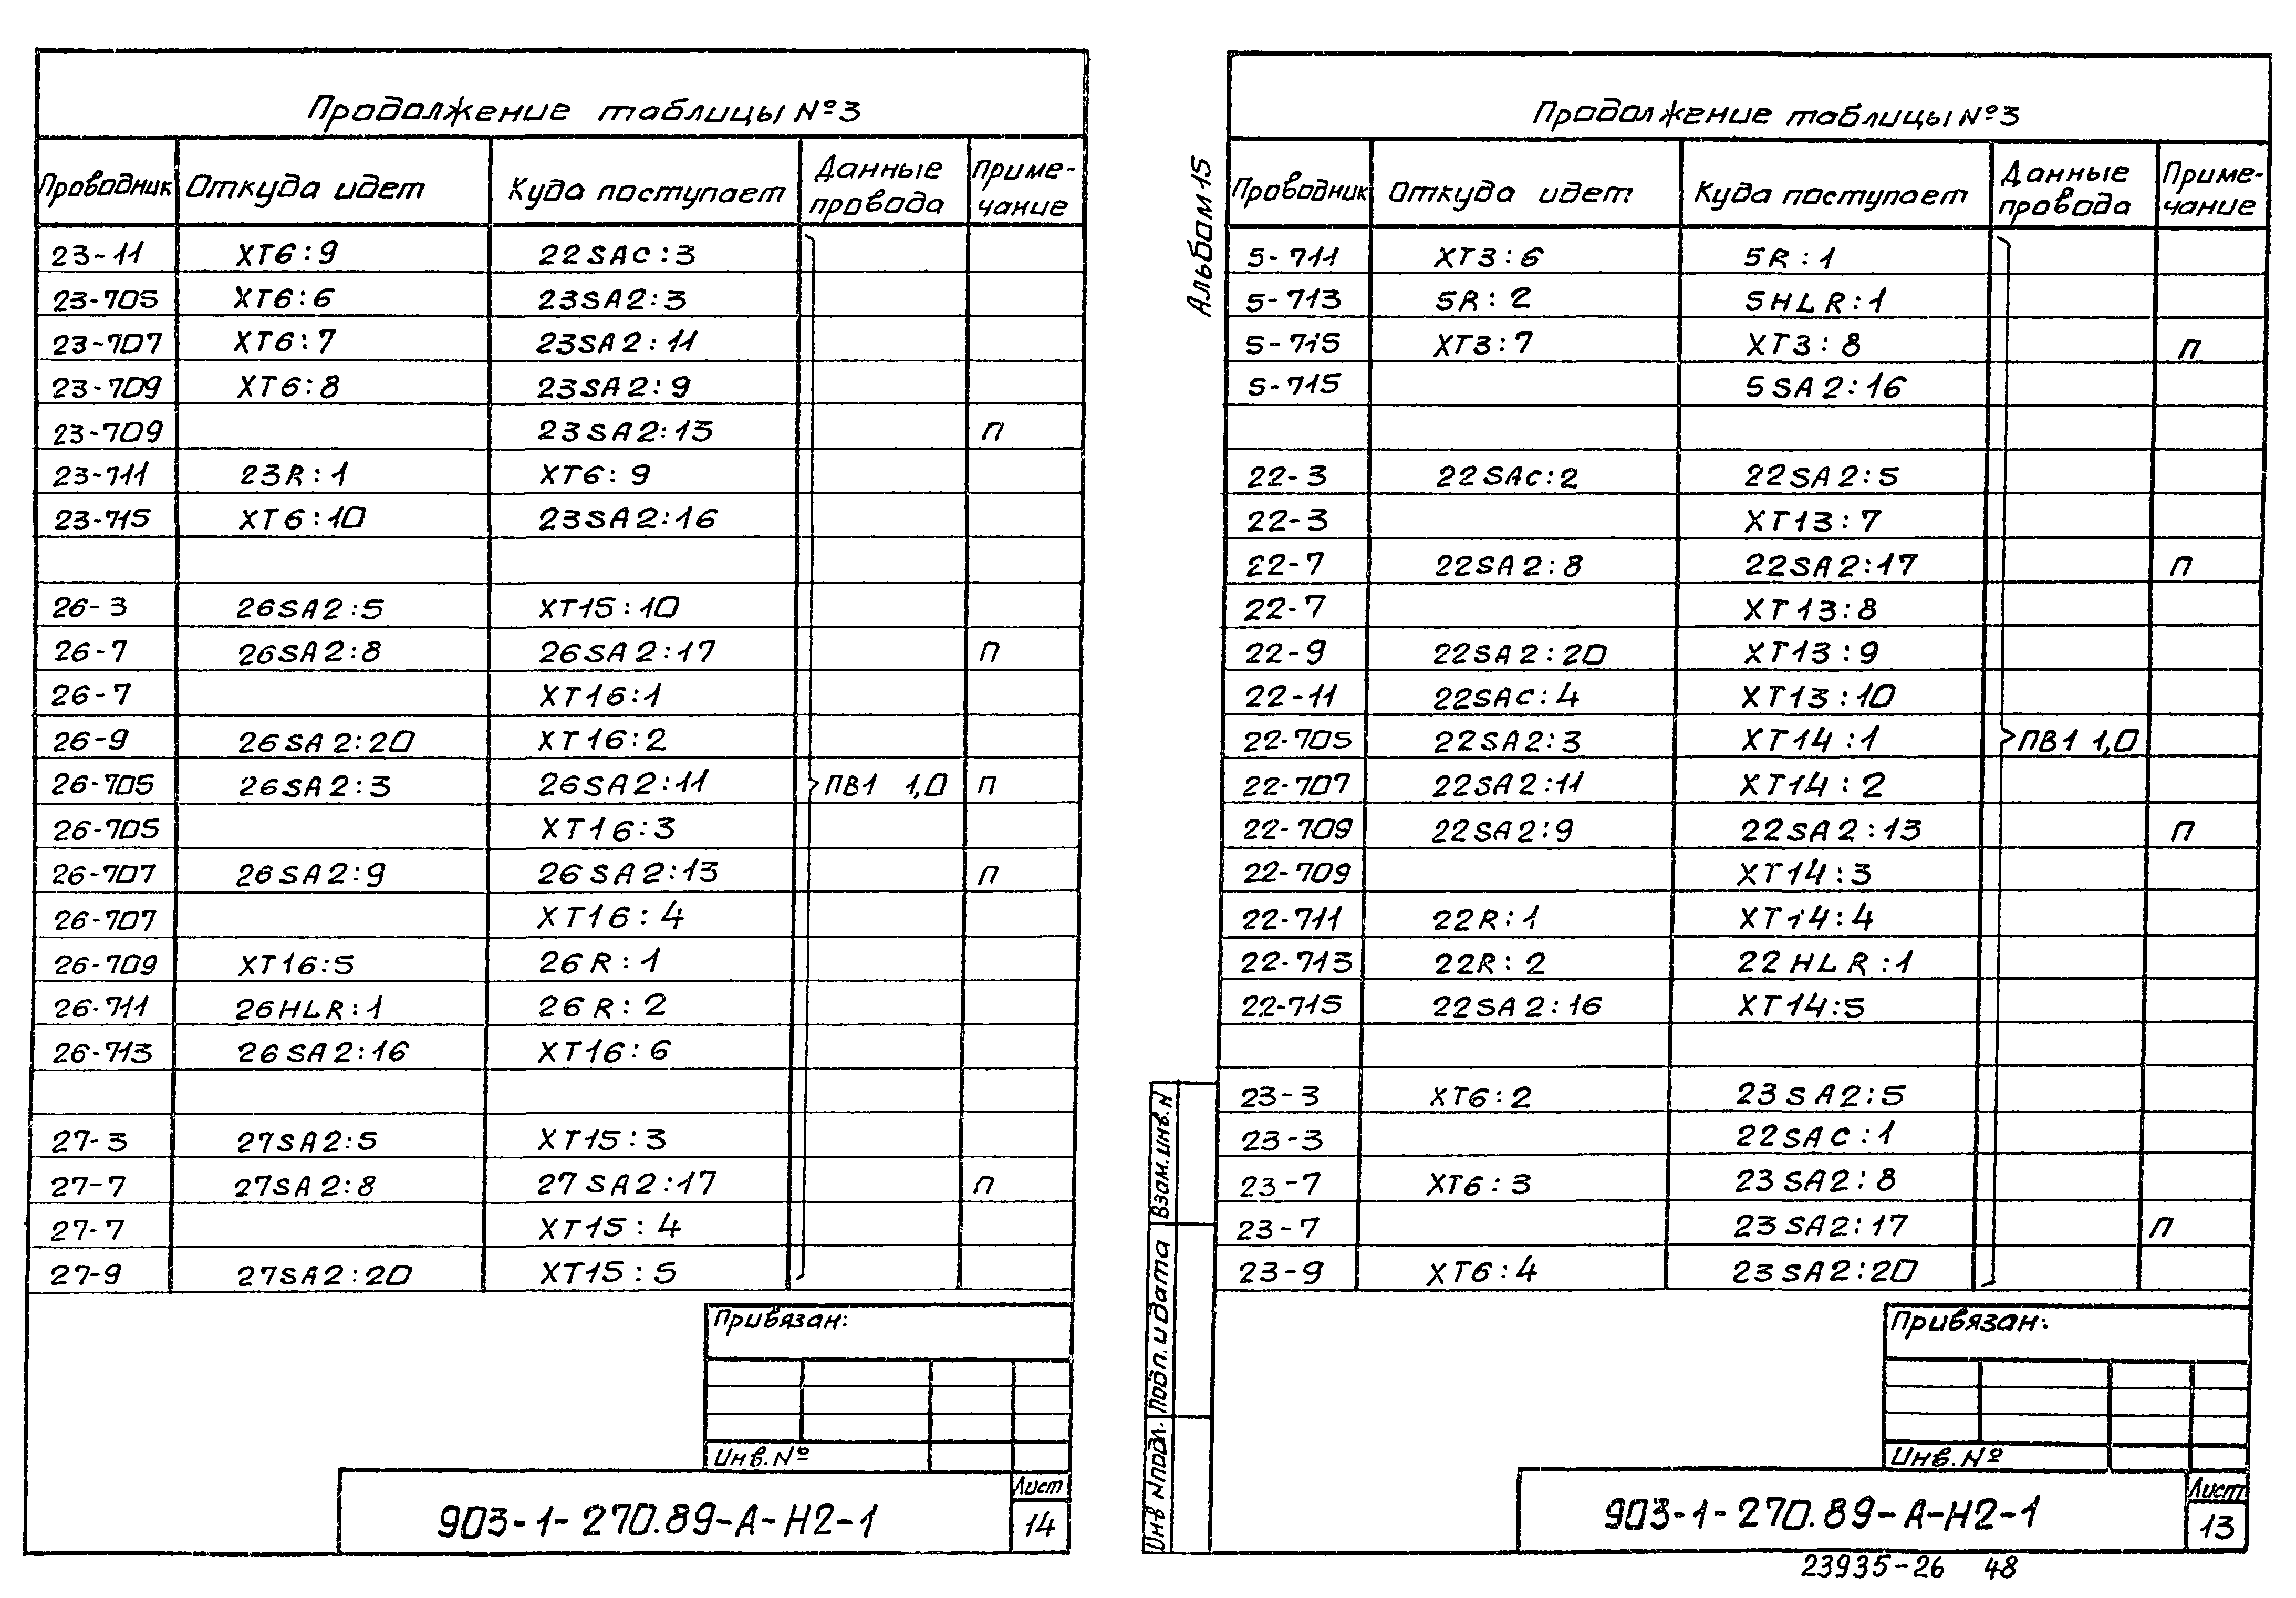 Продолжение таблицы №3
Проводник Откуда идет Куда поступает Данные провода Примечание
23-11 XT6:9 22SAC:3
23-705 XT6:6 23SA2:3
23-707 XT6:7 23SA2:11
23-709 XT6:8 23SA2:9
23-709 23SA2:13 П
23-711 23R:1 XT6:9
23-715 XT6:10 23SA2:16
26-3 26SA2:5 XT15:10
26-7 26SA2:8 26SA2:17 П
26-7 XT16:1
26-9 26SA2:20 XT16:2
26-705 26SA2:3 26SA2:11 ПВ1 1,0 П
26-705 XT16:3
26-707 26SA2:9 26SA2:13 П
26-707 XT16:4
26-709 XT16:5 26R:1
26-711 26HLR:1 26R:2
26-713 26SA2:16 XT16:6
27-3 27SA2:5 XT15:3
27-7 27SA2:8 27SA2:17 П
27-7 XT15:4
27-9 27SA2:20 XT15:5
Привязан:
Инв.№
903-1-270.89-А-Н2-1
Лист
14
Альбом 15
Продолжение таблицы №3
Проводник Откуда идет Куда поступает Данные провода Примечание
5-711 XT3:6 5R:1
5-713 5R:2 5HLR:1
5-715 XT3:7 XT3:8 П
5-715 5SA2:16
22-3 22SAC:2 22SA2:5
22-3 XT13:7
22-7 22SA2:8 22SA2:17 П
22-7 XT13:8
22-9 22SA2:20 XT13:9
22-11 22SAC:4 XT13:10
22-705 22SA2:3 XT14:1 ПВ1 1,0
22-707 22SA2:11 XT14:2
22-709 22SA2:9 22SA2:13 П
22-709 XT14:3
22-711 22R:1 XT14:4
22-713 22R:2 22HLR:1
22-715 22SA2:16 XT14:5
23-3 XT6:2 23SA2:5
23-3 22SAC:1
23-7 XT6:3 23SA2:8
23-7 23SA2:17 П
23-9 XT6:4 23SA2:20
Взам.инв.N
Подп. и дата
Инв N подл.
Привязан:
Инв.№
903-1-270.89-А-Н2-1
Лист
13
23935-26 48